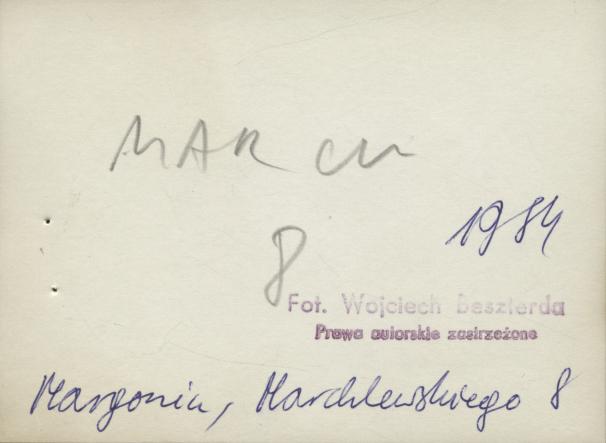 MARCH
8
1984
Fot. Wojciech Beszterda
Prawa autorskie zastrzeżone
Margonin, Marchlewskiego 8